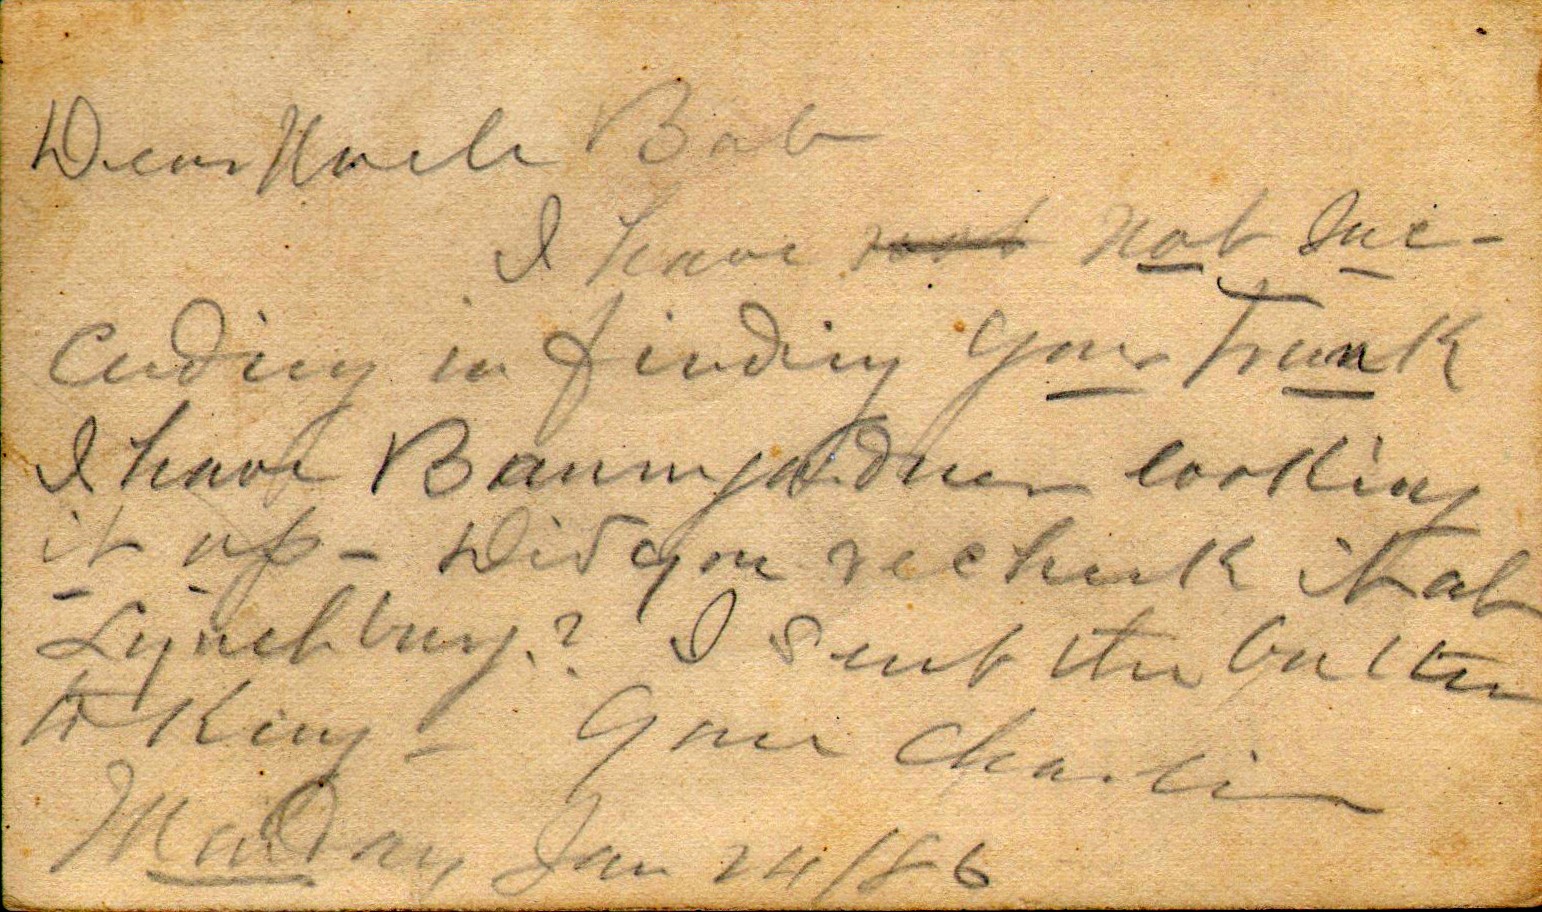 Dear Uncle Bob
I have not not Suc-
ceeding in finding your Trunk
I have Baumgardner looking
it up - Did you recheck it at
Lynchburg? I sent the
to King - Your Charlie
Monday Jan 24/86